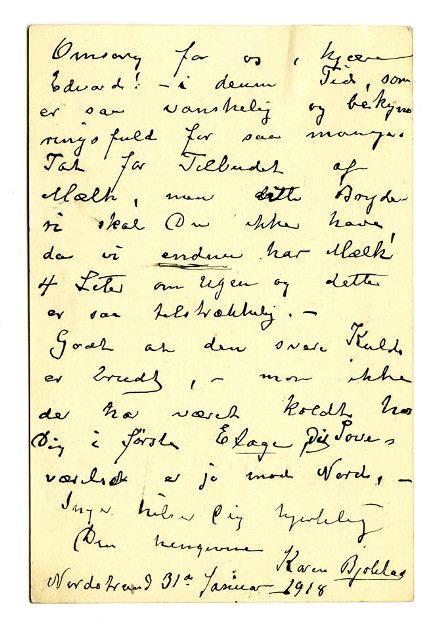 Omsorg for os, kjære
Edvard! – i denne Tid, som
er saa vanskelig og bekym
ringsfuld for saa mange.
Tak for Tilbudet af
Mælk, men dette Bryde
ri skal Du ikke have,
da vi endnu har Mælk
4 Liter om Ugen og dette
er saa tilstrækkelig. –
Godt at den svære Kulde
er brudt, – mon ikke
der har været koldt hos
Dig i første Etage, Dit Sove=
værelse er jo mod Nord, –
Inga hilser Dig hjertelig
Din hengivne
Karen
Nordstrand 31te Januar 1918